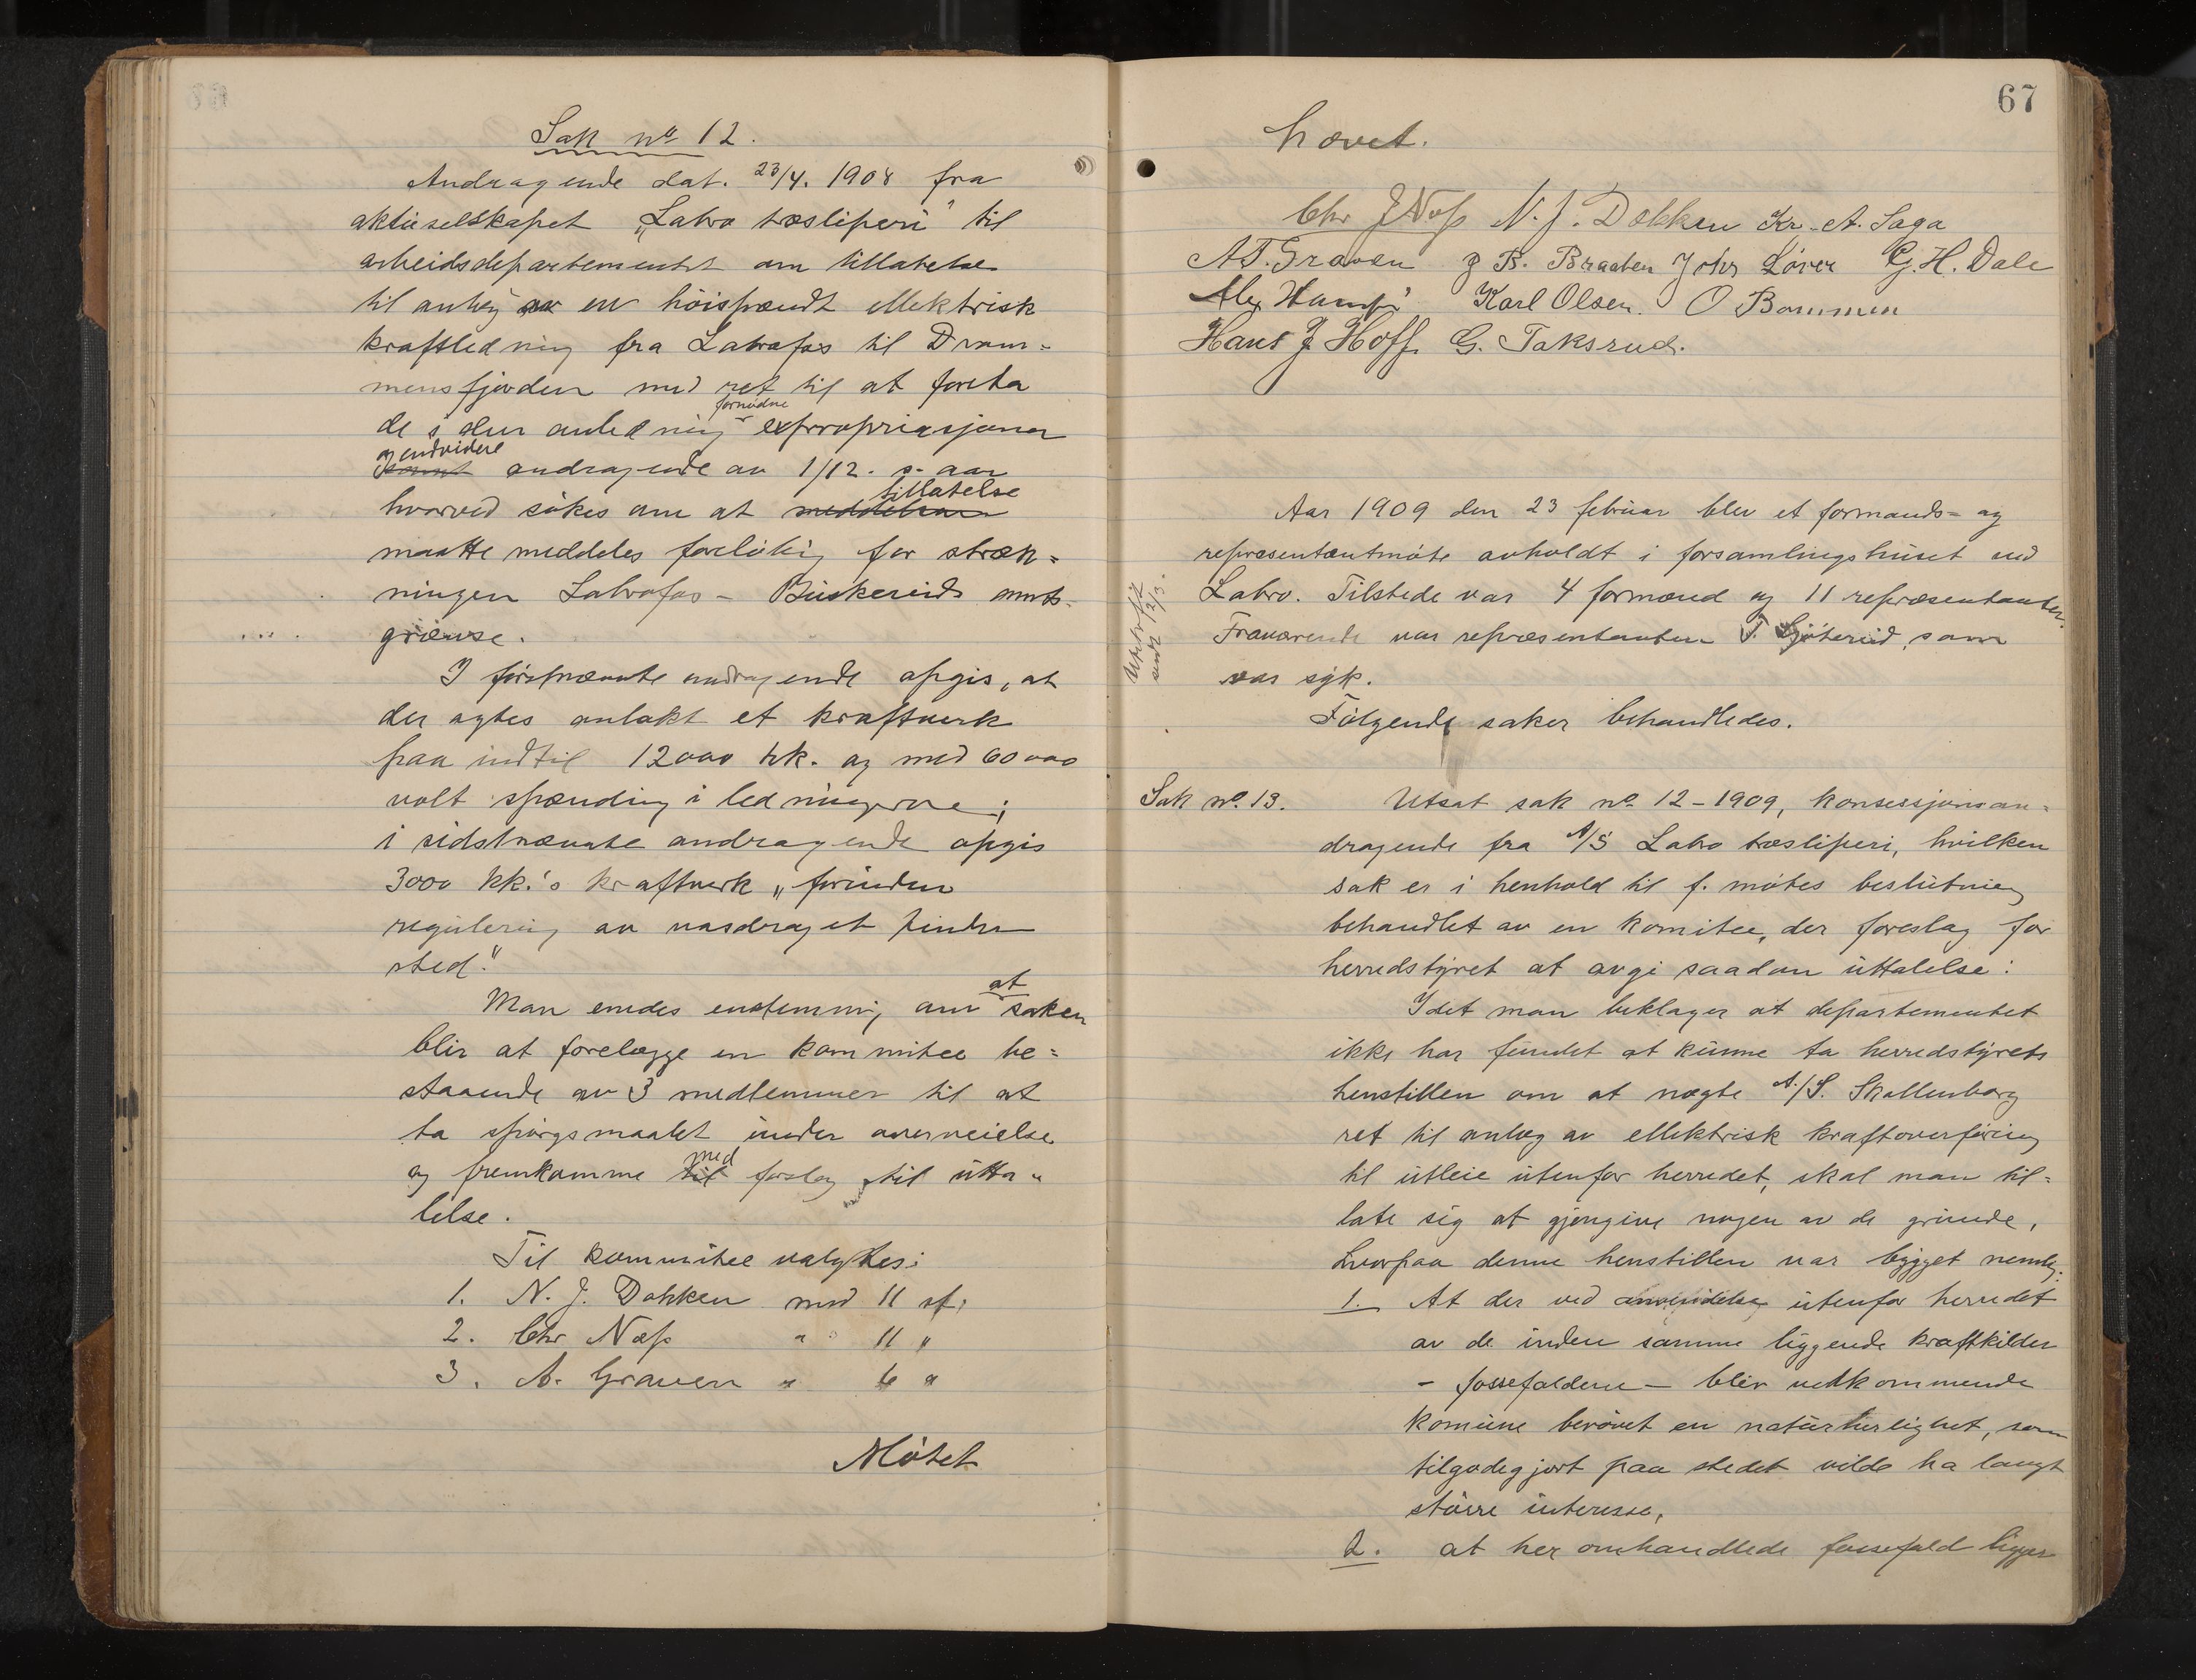 Sak no 12.
Andragende dat. 23/4. 1908 fra
aktieselskapet „Labro træsliperi" til
arbeidsdepartementet om tillatelse
til anlæg av en höispændt ellektrisk
kraftledning fra Labrofos til Dram-
mensfjorden med ret til at foreta
de i den anledning fornødne expropriasjoner
og endvidere andragende av 1/12. s. aar
hvorved søkes om at tillatelse
maatte meddeles foreløbig for stræk-
ningen Labrofos - Buskeruds amts-
grænse.
I førstnævnte andragende opgis, at
der agtes anlakt et kraftverk
paa indtil 12000 hk. og med 60000
volt spænding i ledningerne;
i sidstnævnte andragende opgis
3000 hk.'s kraftverk „forinden
regulering av vasdraget finder
sted."
Man enedes enstemmig om at saken
blir at forelægge en kommitee be-
staaende av 3 medlemmer til at
ta spörgsmaalet under overveielse
og fremkomme med forslag til utta-
lelse.
Til kommitee valgtes:
1. N. J. Dokken med 11 st.
2. Chr Næss " " 11 "
3. A. Graven " 6 "
Mötet
67
hævet.
Chr J Næss N. J. Dokken Kr. A. Saga
A T. Graven J B. Braaten Johs Løver G. H. Dale
Alex Karl Olsen. O Bommen
Hans J Hoff G. Taksrud.
Aar 1909 den 23 februar blev et formands- og
repræsentantmöte avholdt i forsamlingshuset ved
Labro. Tilstede var 4 formænd og 11 repræsentanter.
Fraværende var repræsentanten T. som
var syk.
Fölgende saker behandledes.
Sak no. 13. Utsat sak no 12-1909, konsessjonsan-
dragende fra A/S Labro træsliperi, hvilken
sak er i henhold til f. mötes beslutning
behandlet av en komitee, der foreslog for
herredstyret at avgi saadan uttalelse:
Idet man beklager at departementet
ikke har fundet at kunne ta herredstyrets
henstillen om at nægte A/S. Skollenborg
ret til anlæg av ellektrisk kraftoverföring
til utleie utenfor herredet, skal man til-
late sig at gjengive nogen av de grunde,
hvorpaa denne henstillen var bygget nemlig:
1. At der ved anvendelse utenfor herredet
av de inden samme liggende kraftkilder
- fossefaldene - blir vedkommende
komune berövet en naturherlighet, som
tilgodegjort paa stedet vilde ha langt
större interesse,
2. at her omhandlede fossefald ligger